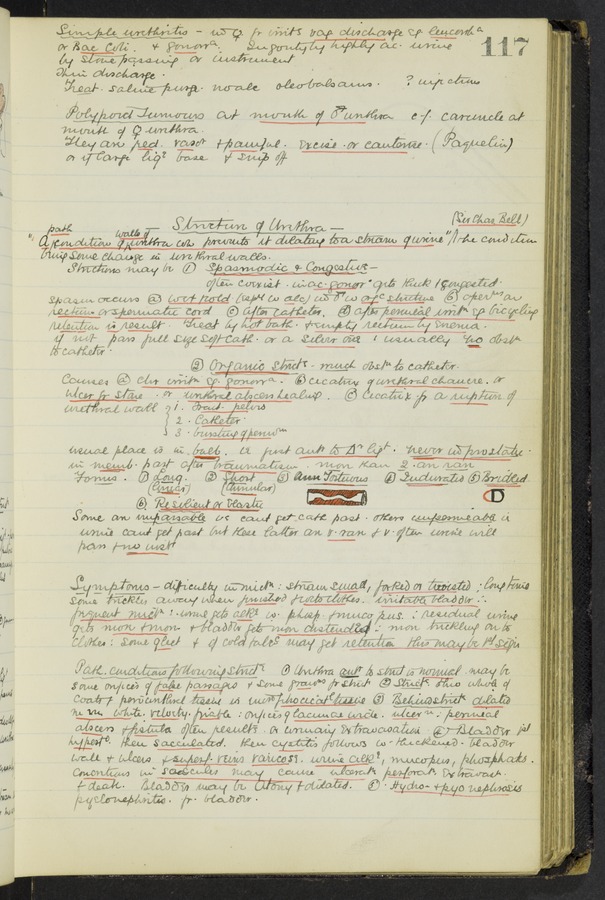 117
Simple urethritis - in ♀ fr irrit vag discharge eg leucorrha
or Bac Coli. + gonorr. In gouty by highly ac. urine
by stone passing or instrument
Thin discharge.
Treat. saline purge. no alc oleobalsams. ? injections
Polypoid Tumours at mouth of ♂ urethra cf. caruncle at
mouth of ♀ urethra.
They are red. vasr + painful. Excise or cauterise. (Paquelin)
or if large lig base & snip off
Stricture of Urethra - (Sir Chas Bell)
path walls of
"A condition of urethra wh prevents it dilating to a stream of urine" / the condition
being some change in urethral walls.
Strictures may be ① Spasmodic & Congestive -
often coexist. in ac. gonor gets thick & congested.
spasm occurs ⓐ wet & cold ⓑ oper on
rectum or spermatic cord ⓒ after catheter. ⓓ after perineal irrit eg bicycling
retention is result. Treat by hot bath. + empty rectum by enema.
if not pass full size soft cath. or a silver one & usually no obst
to catheter.
② Organic Strict. much obst to catheter.
Causes ⓐ chr irrit eg. gonorr. ⓑ cicatrix of urethral chancre. or
ulcer fr stone. or urethral abscess healing. ⓒ cicatrix fr a rupture of
urethral wall 1. Fract. pelvis
2. Catheter
3. bursting of penis
usual place is in bulb. ie just ant to lig. never in prostatic.
in memb. part after traumatism. more than 2 are rare
Forms. ① Long. ② Short ③ Ann Tortuous ④ Indurated ⑤ Bridled
(linear) (annular)
⑥ Resilient or elastic
Some are impassable ie cant get cath past. others impermeable ie
urine cant get past but these latter are v. rare & v. often urine will
pass & no inst
Symptoms - difficulty in mict: stream small, forked or twisted: long time
some trickles away when finished & wets clothes. irritable bladder ∴
frequent mict: urine gets alk ie phosp & muco pus. ∴ residual urine
gets more & more & bladder gets more distended: more trickling on to
clothes: some gleet & if cold takes may get retention this may be 1st sign
Path. conditions following strict. ① Urethra ant to strict is normal may be
some orifices of false passages & some granns fr strict ② Strict. thro whole of
coats & periurethral tissue is fibrocicatl tissue ③ Behind strict dilated
white velvety. friable: orifices of lacunae wide. ulcer: perineal
abscess & fistula often results or urinary extravasation ④ Bladder 1st
hypert. then sacculated. then cystitis follows ie thickened. bladder
wall & ulcers & superf. veins varicose. urine alk, mucopus, phosphats.
Concretions in saccules may cause ulcerat perforat Extravast
& death. Bladder may be Atony & dilated. ⑤. Hydro- & pyo nephrosis
pyelonephritis. fr. bladder.